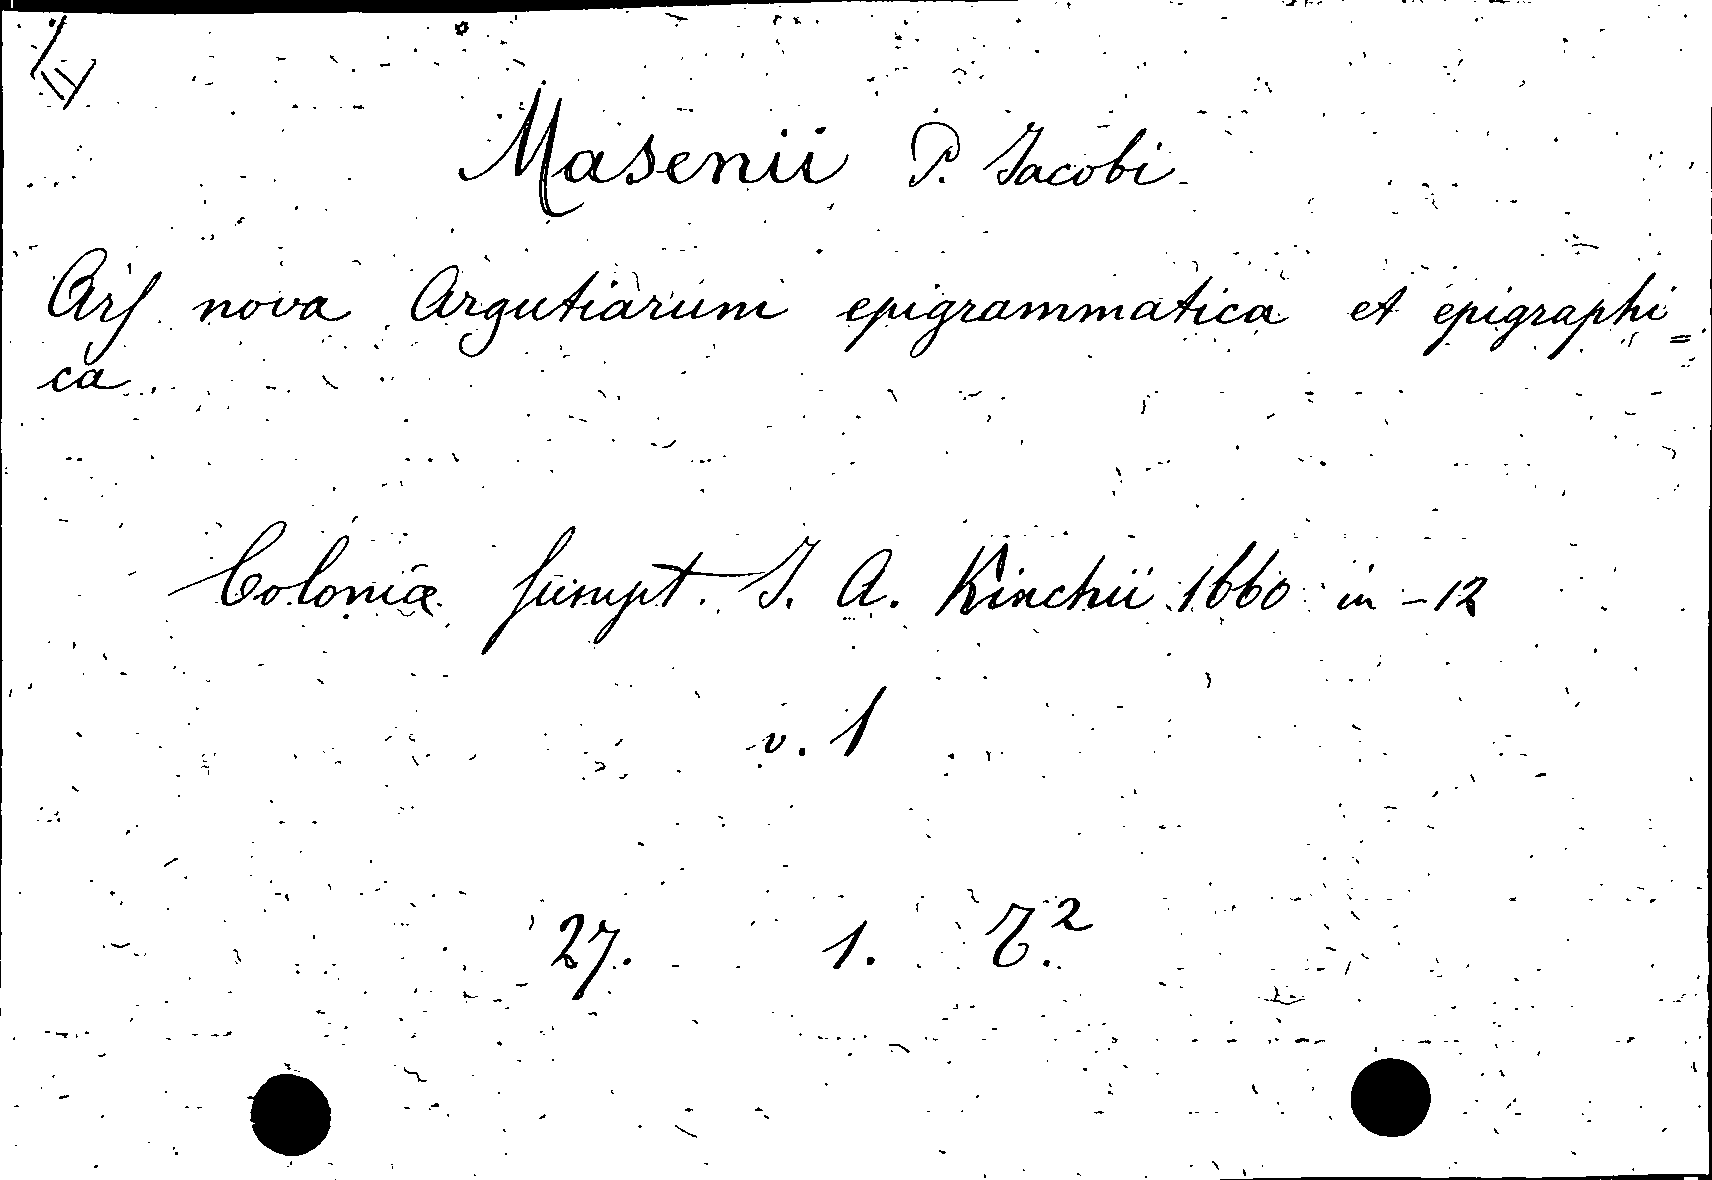 Masenii P. Jacobi
Ars nova Argutiarum epigrammatica et epigraphi=
ca
Coloniæ sumpt. J. A. Kinchii 1660 in-12
v. 1
27. 1.